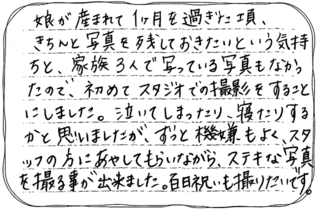 娘が産まれて1ヶ月を過ぎた頃、
きちんと写真を残しておきたいという気持
ちと、家族3人で写っている写真もなかっ
たので、初めてスタジオでの撮影をすること
にしました。泣いてしまったり、寝たりする
かと思いましたが、ずっと機嫌もよく、スタ
ッフの方にあやしてもらいながら、ステキな写真
を撮る事が出来ました。百日祝いも撮りたいです。